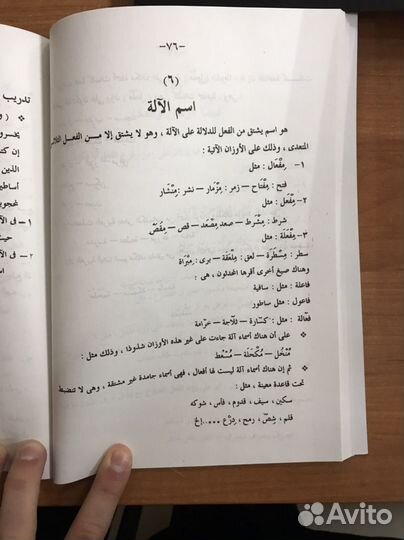 -٧٦-
(٦)
اسم الآلة
هو اسم يشتق من الفعل للدلالة على الآلة ، وهو لا يشتق إلا مـن الفعـل الثلاثى
المتعدى ، وذلك على الأوزان الآتية :
١- مِفْعَال : مثل
فتح : مِفْتاح – زمر : مِزْمار – نشر : مِنْشار
٢- مِفْعَل : مثل
شرط : مِشْرط – صعد مِصْعَد – قص – مِقَصّ
٣- مِفْعَلَة : مثل
سطر : مِسْطرَة – لعق : مِلْعَقة – برى : مِبْرَاة
وهناك صيغ أخرى أقرها المحدثون ، هى :
فاعلة : مثل : ساقية
فاعول : مثل ساطور
فعّالة : مثل : كسّارة – ثلاّجة – عرّامة
على أن هناك أسماء آلة جاءت على غير هذه الأوزان شذوذا ، وذلك مثل :
مُنْخُل – مُكْحُلَة – مُسْعُط
ثم إن هناك أسماء آلة ليست لها أفعال ، فهى أسماء جامدة غير مشتقة ، وهى لا تنضبط
تحت قاعدة معينة ، مثل :
سكين ، سيف ، قدوم ، فأس ، شوكه
قلم ، شِصّ ، رمح ، دِرْع ....إلخ
تدريب
(
إن كنت
الذين
أساطير
١- فى الآ
٢- فى الآ
Avito